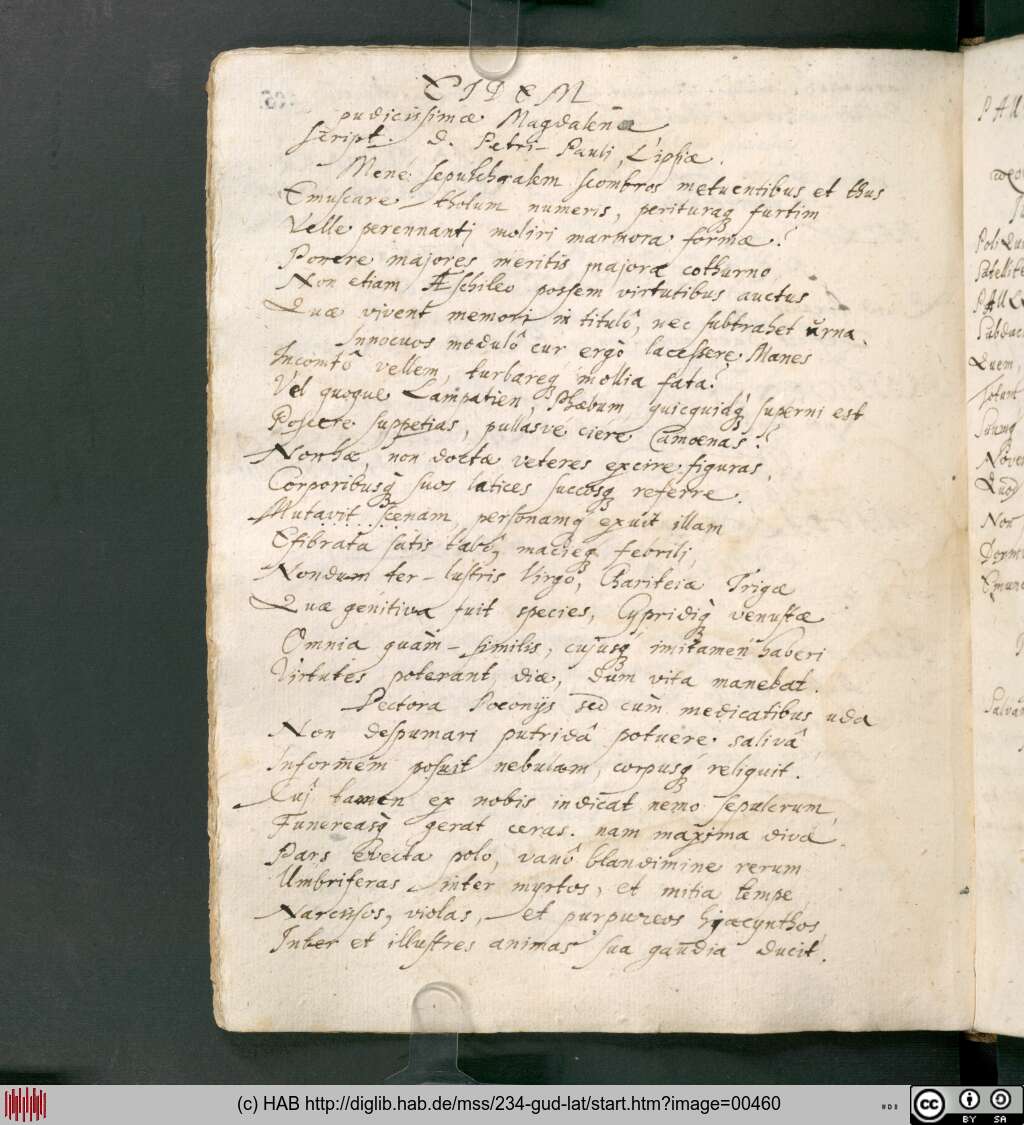 EIDEM
pudicissimæ Magdalenæ
script. d. Petri-Pauli, Lipsiæ.
Mene: sepulchralem scombros metuentibus et thus
Emuscare tholum numeris, perituraq furtim
Velle perennanti moliri marmora formæ?
Ponere majores meritis majora cothurno
Non etiam Æschileo possem virtutibus auctus
Quæ vivent memori in titulô, nec subtrahet urna.
Innocuos modulô cur ergò lacessere Manes
Incomtô vellem, turbareq mollia fata?
Vel quoque Lampatien, Phæbum, quicquidq superni est
Poscere suppetias, pullasve ciere Camoenas?
Non hæ, non doctæ veteres excire figuras,
Corporibusq suos latices succosq referre.
Mutavit scenam, personamq exuit illam
Efibrata satis tabô, macieq febrili,
Nondum ter-lustris Virgo, Chariteiæ Trigæ
Quæ genitiva fuit species, Cypridiq venustæ
Omnia quàm-similis, cujusq imitamen haberi
Virtutes poterant diæ, dum vita manebat.
Pectora Poeonijs sed cùm medicatibus uda
Non despumari putridâ potuere salivâ
Informem posuit nebulam, corpusq reliquit.
Cuj tamen ex nobis indicat nemo sepulcrum,
Funereasq gerat ceras. nam maxima diva
Pars evecta polo, vanô blandimine rerum
Umbriferas inter myrtos, et mitia tempe,
Narcissos, violas, et purpureos hyacynthos,
Inter et illustres animas sua gaudia ducit.
PAll
Pol
Satellite
PAll
Subdac
Quem,
Totum
Quod
Non
(c) HAB http://diglib.hab.de/mss/234-gud-lat/start.htm?image=00460
cc
BY SA